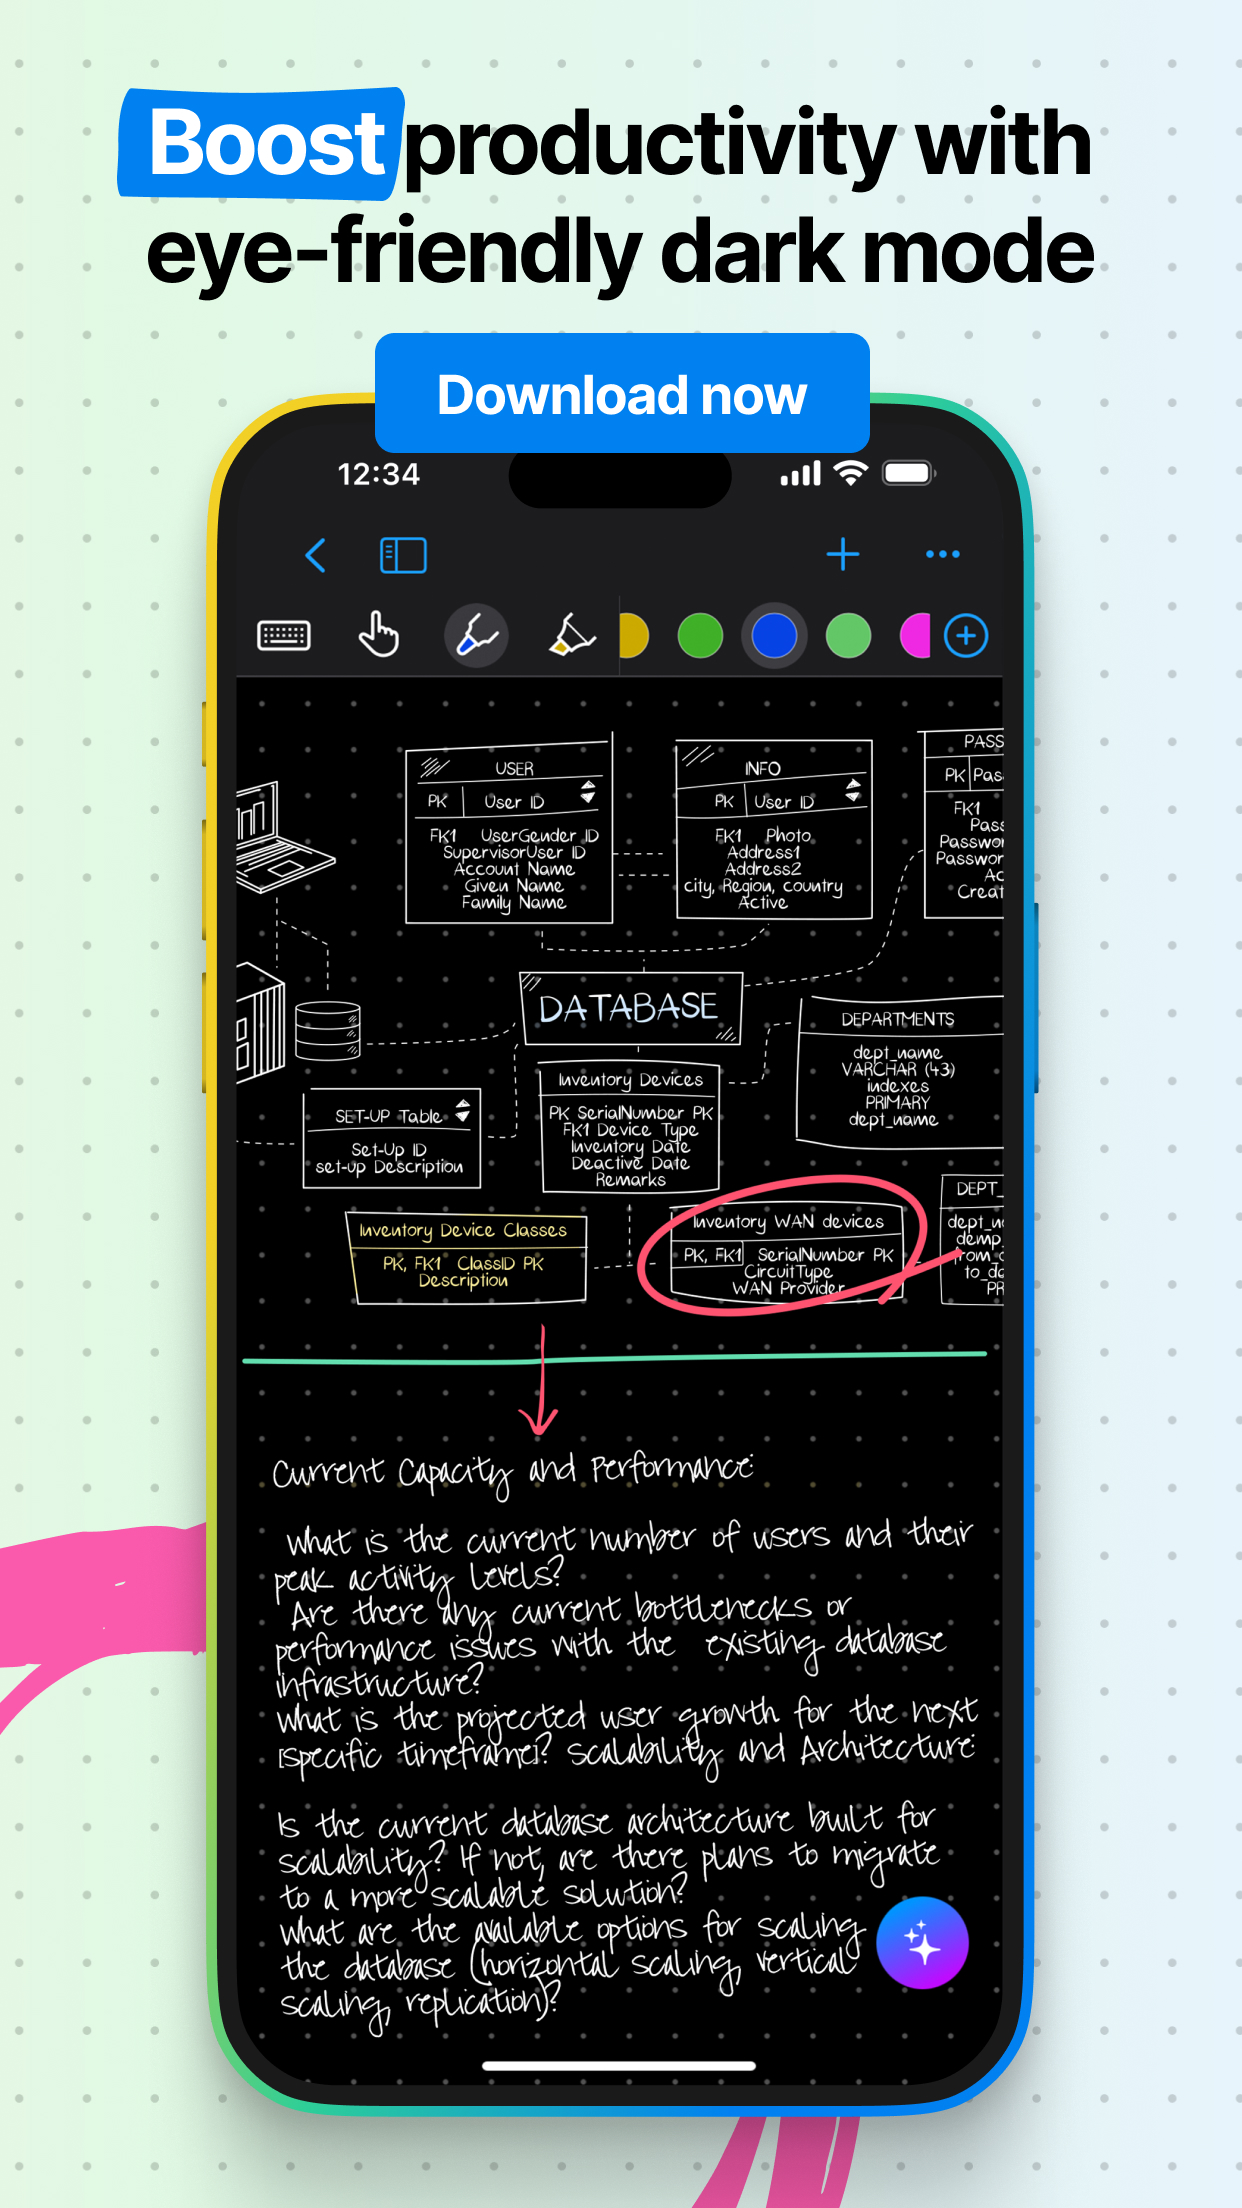 Boost productivity with
eye-friendly dark mode
Download now
12:34
USER
PK User ID
FK1 UserGender ID
SupervisorUser ID
Account Name
Given Name
Family Name
INFO
PK User ID
FK1 Photo
Address1
Address2
city, Region, country
Active
PASS
PK Pas
FK1
Pass
Passwor
Password
Ac
Creat
DATABASE
DEPARTMENTS
dept_name
VARCHAR (43)
indexes
PRIMARY
dept_name
Inventory Devices
PK SerialNumber PK
FK1 Device Type
Inventory Date
Deactive Date
Remarks
SET-UP Table
Set-Up ID
set-up Description
Inventory Device Classes
PK, FK1 ClassID PK
Description
Inventory WAN devices
PK, FK1 SerialNumber PK
CircuitType
WAN Provider
DEPT_
dept_n
demp_
from_d
to_da
PR
Current Capacity and Performance:
What is the current number of users and their
peak activity levels?
Are there any current bottlenecks or
performance issues with the existing database
infrastructure?
What is the projected user growth for the next
[specific timeframe]? Scalability and Architecture:
Is the current database architecture built for
scalability? If not, are there plans to migrate
to a more scalable solution?
What are the available options for scaling
the database (horizontal scaling, vertical
scaling, replication)?